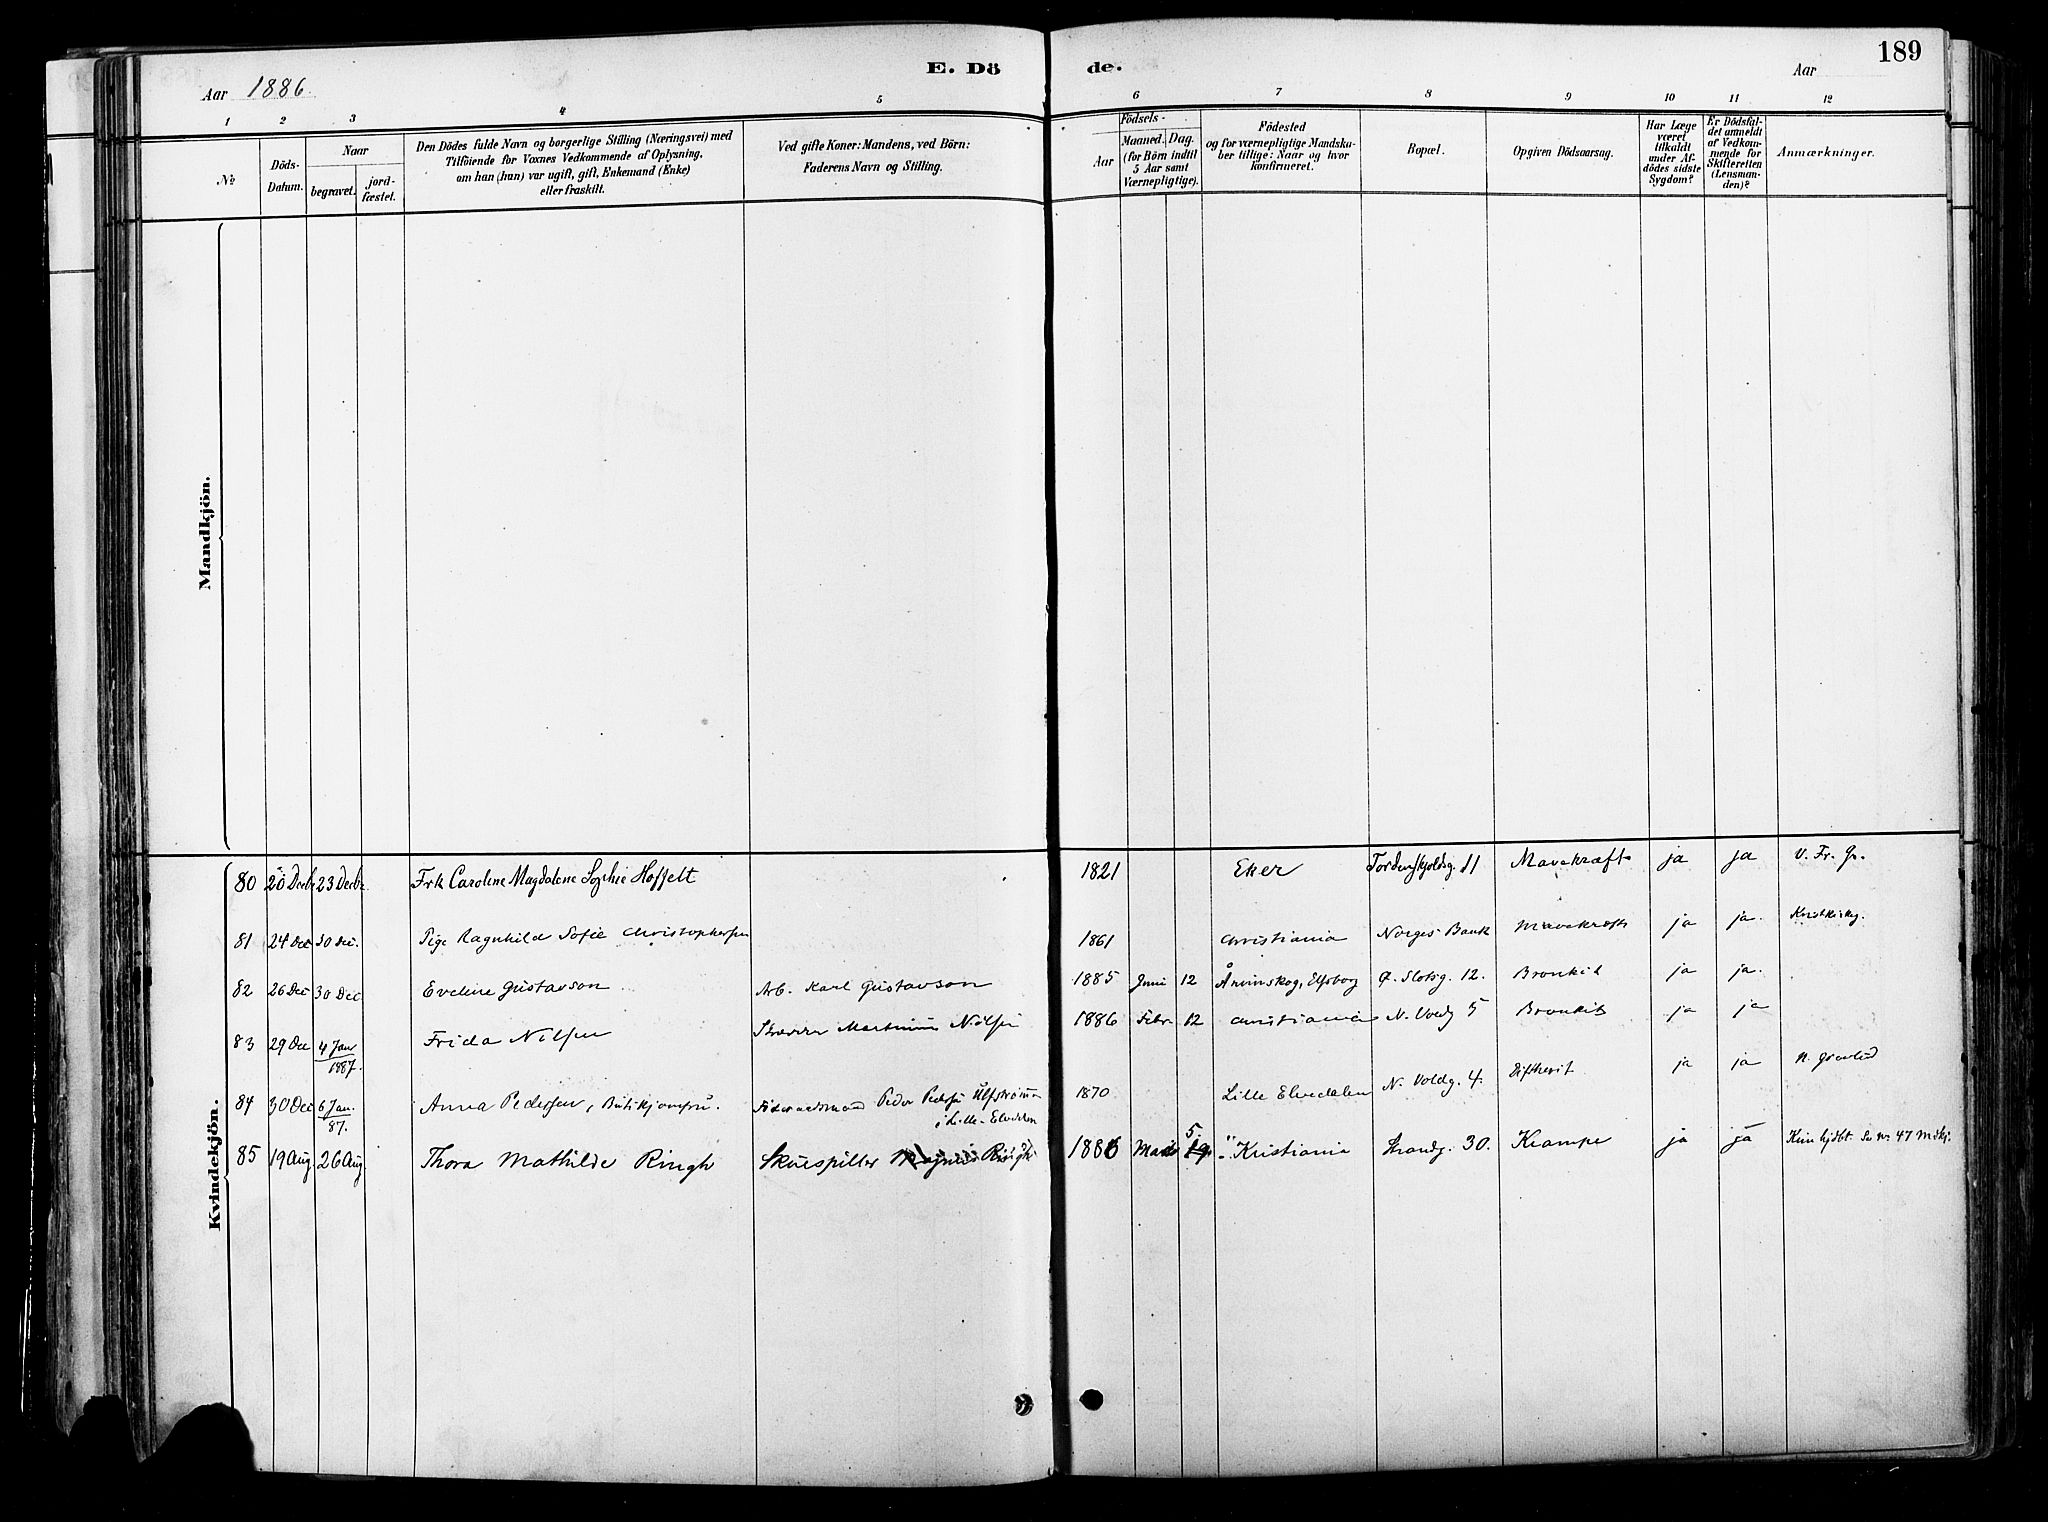 189
E. Dö de.
Aar 1886.
Aar
1 2 3 4 5 6 7 8 9 10 11 12
No
Döds-Datum.
Naar
begravet.
jord-fæstet.
Den Dödes fulde Navn og borgerlige Stilling (Næringsvei) med
Tilföiende for Voxnes Vedkommende af Oplysning,
om han (hun) var ugift, gift, Enkemand (Enke)
eller fraskilt.
Ved gifte Koner: Mandens, ved Börn:
Faderens Navn og Stilling.
Födsels-
Aar
Maaned. Dag.
(for Börn indtil
5 Aar samt
Værnepligtige).
Födested
og for værnepligtige Mandsku-
ber tillige: Naar og hvor
konfirmeret.
Bopæl.
Opgiven Dödsaarsag.
Har Læge
været
tilkaldt
under Af-
dödes sidste
Sygdom?
Er Dödsfal-
det anmeldt
af Vedkom-
mende for
Skifteretten
(Lensman-
den)?
Anmærkninger.
Mandkjön.
Kvindekjön.
80 20 Decbr 23 Decbr Frk Carolene Magdalene Sophie Hoffelt 1821 Eker Tordenskjoldsg. 11 Mavekræft ja ja V. Fr. Gr.
81 24 Dec 30 Dec. Pige Ragnhild Sofie Christophersen 1861 Christiania Norges Bank Mavekræft ja ja. Kristkirkeg.
82 26 Dec 30 Dec Eveline Gustavson Arb. Karl Gustavson 1885 Juni 12 Ånimskog, Elfsborg Ø. Slotsg. 12. Bronkit ja ja.
83 29 Dec 4 Jan 1887. Frida Nilsen Skrædder Martinius Nilsen 1886 Febr 12 Christiania N. Voldg 5 Bronkit ja ja
84 30 Dec 6 Jan. 87. Anna Pedersen, Butikjomfru. Peder Peders. Ulfstrømm
i Lille-Elvedalen 1870 Lille Elvedalen N. Voldg. 4. Difterit ja ja N. Gravlund
85 19 Aug 26 Aug Thora Mathilde Ringh Skuespiller Magnus Ringh 1886 Marts 5. 19 Kristiania Strandg. 30. Krampe ja ja Kun hjdbt. Se No. 47 Mdkj.